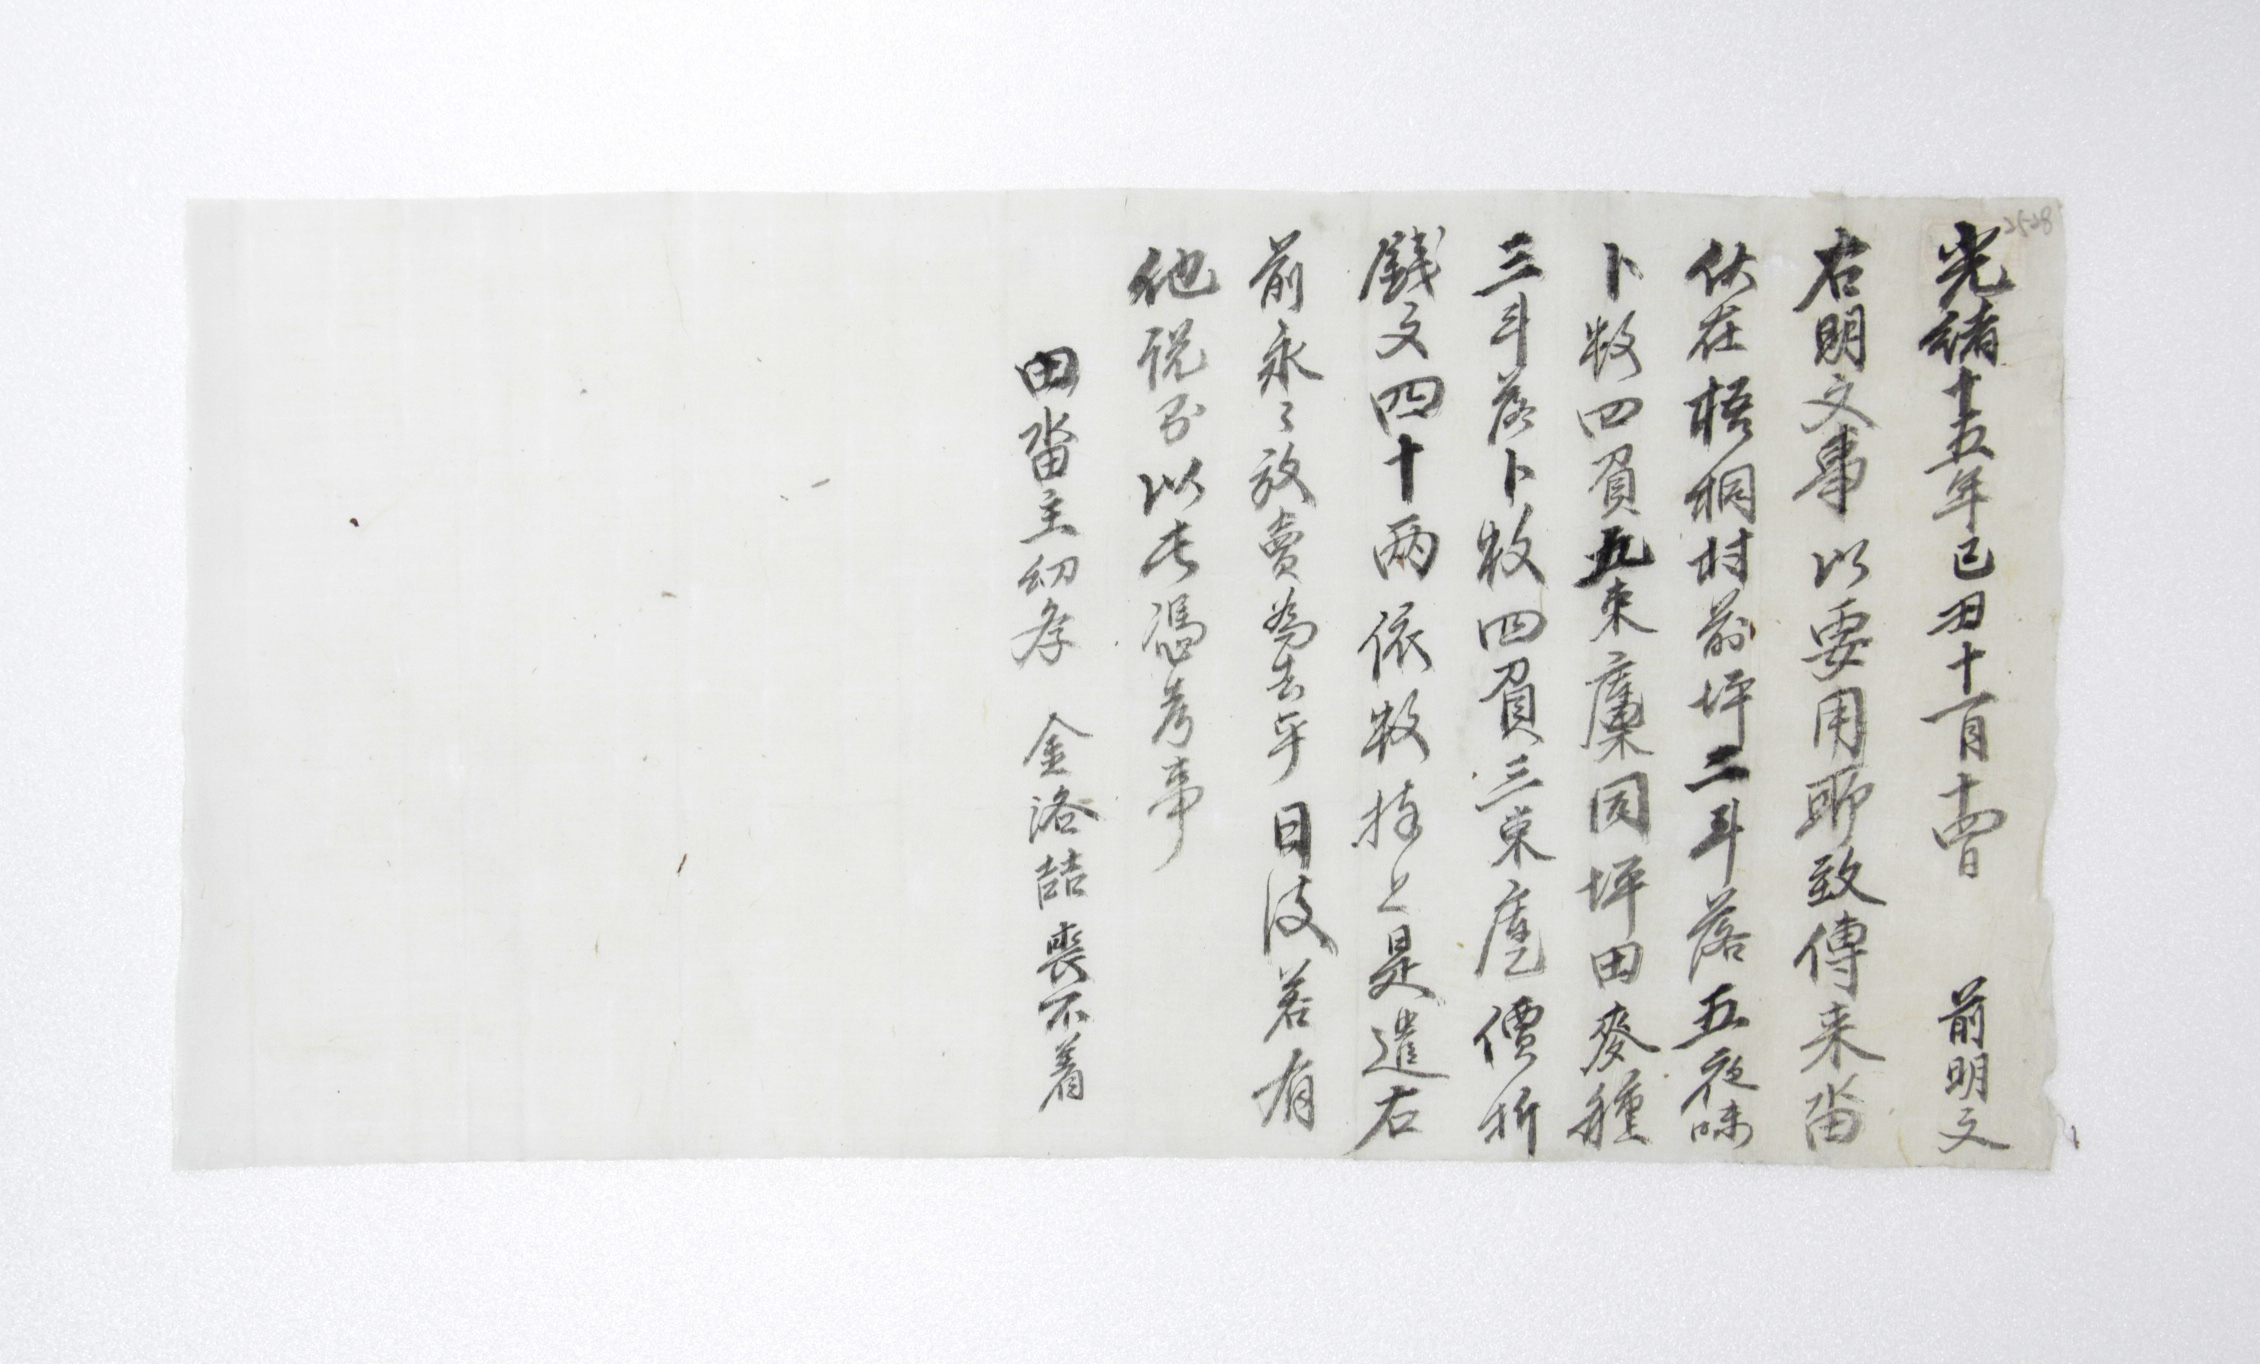 光緒十五年己丑十一月十四日 前明文
右明文事 以要用所致傳来畓
伏在梧桐村前坪二斗落五夜味
卜数四負五束廩同坪田麥種
三斗落卜数四負三束庫乙價折
錢文四十兩依数捧上是遣右
前永〻放賣爲去乎日後若有
他說則以此憑考事
田畓主幼孝 金洛喆 喪不着
2528